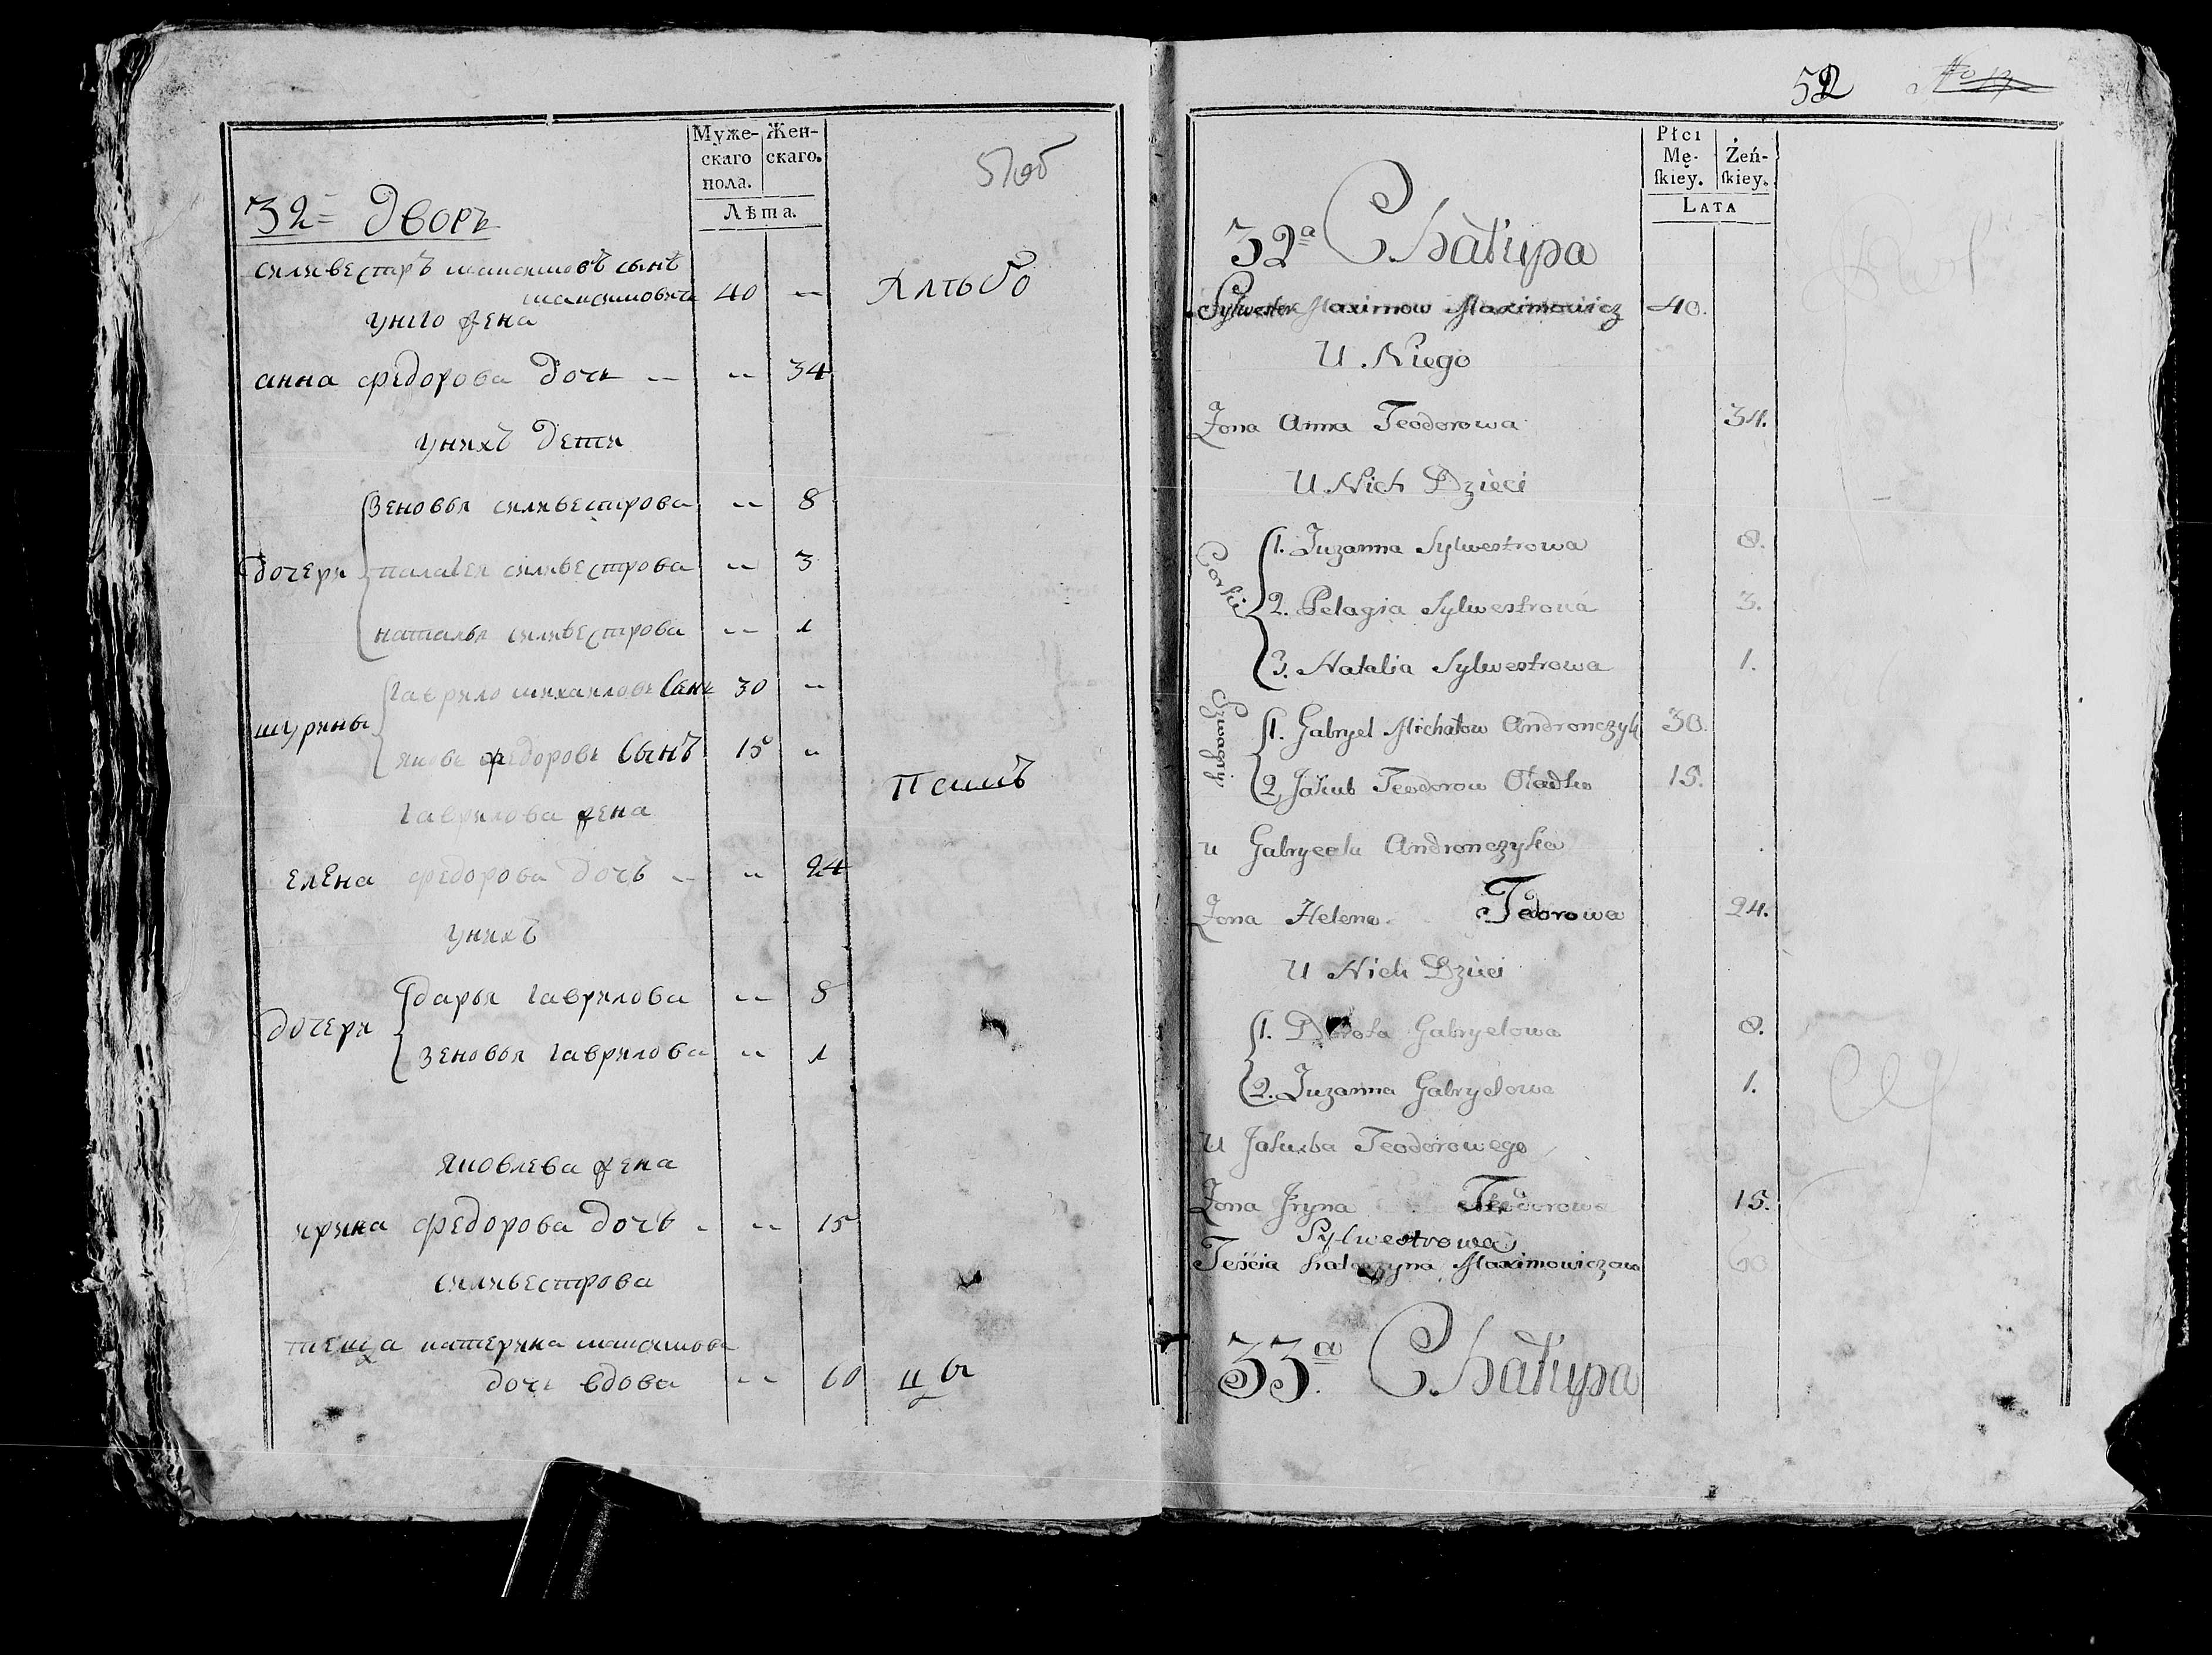 Муже-
скаго
пола.
Жен-
скаго.
Лѣта.
32 Дворъ
силивестръ максимовъ сынъ
максимовичъ 40 --
унего жена
анна федорова дочь -- -- 34
унихъ дети
дочери
зеновья силивестрова -- 8
палагея силивестрова -- 3
наталья силивестрова -- 1
шурины
гаврило михаиловъ сынъ 30 --
яковъ федоровъ сынъ 15 --
гаврилова жена
елена федорова дочь -- -- 24
унихъ
дочери
дарья гаврилова -- 8
зеновья гаврилова -- 1
яковлева жена
ирина федорова дочь - -- 15
силивестрова
теща катерина максимова
дочь вдова -- 60
52
Płci
Mę-
ſkiey.
Żeń-
ſkiey.
Lata
32a Chałupa
Sylwester Maximow Maximowicz 40.
U Niego
Żona Anna Teodorowa 34.
U Nich Dzieci
Corki
1. Zuzanna Sylwestrowa 8.
2. Pelagia Sylwestrowa 3.
3. Natalia Sylwestrowa 1.
Szwagry
1. Gabryel Michałow Andronczyk 30.
2. Jakub Teodorow Oładko 15.
u Gabryela Andronczyka
Żona Helena Tedorowa 24.
U Nich Dzieci
1. Dorota Gabryelowa 8.
2. Zuzanna Gabryelowa 1.
U Jakuba Teodorowego
Żona Jryna Teodorowa 15.
Sylwestrowa
Teścia Katarzyna Maximowiczowa 60
33a. Chałupa